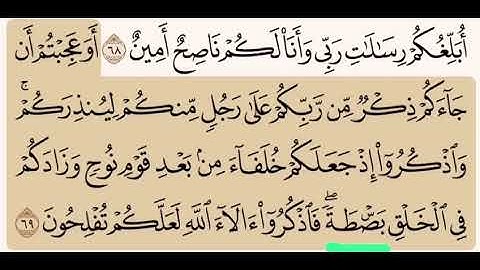 أُبَلِّغُكُمْ رِسَٰلَٰتِ رَبِّي وَأَنَا۠ لَكُمْ نَاصِحٌ أَمِينٌ ٦٨ أَوَعَجِبْتُمْ أَن
جَآءَكُمْ ذِكْرٌ مِّن رَّبِّكُمْ عَلَىٰ رَجُلٍ مِّنكُمْ لِيُنذِرَكُمْ ۚ
وَٱذْكُرُوٓا۟ إِذْ جَعَلَكُمْ خُلَفَآءَ مِنۢ بَعْدِ قَوْمِ نُوحٍ وَزَادَكُمْ
فِي ٱلْخَلْقِ بَصْۜطَةً ۖ فَٱذْكُرُوٓا۟ ءَالَآءَ ٱللَّهِ لَعَلَّكُمْ تُفْلِحُونَ ٦٩